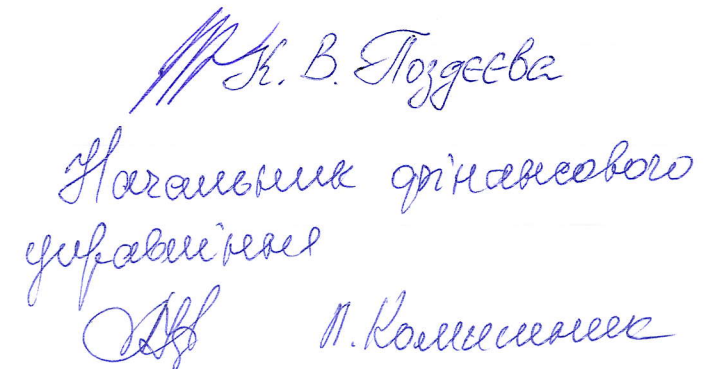 К. В. Поздєєва
Начальник фінансового
управління
Л. Комишник